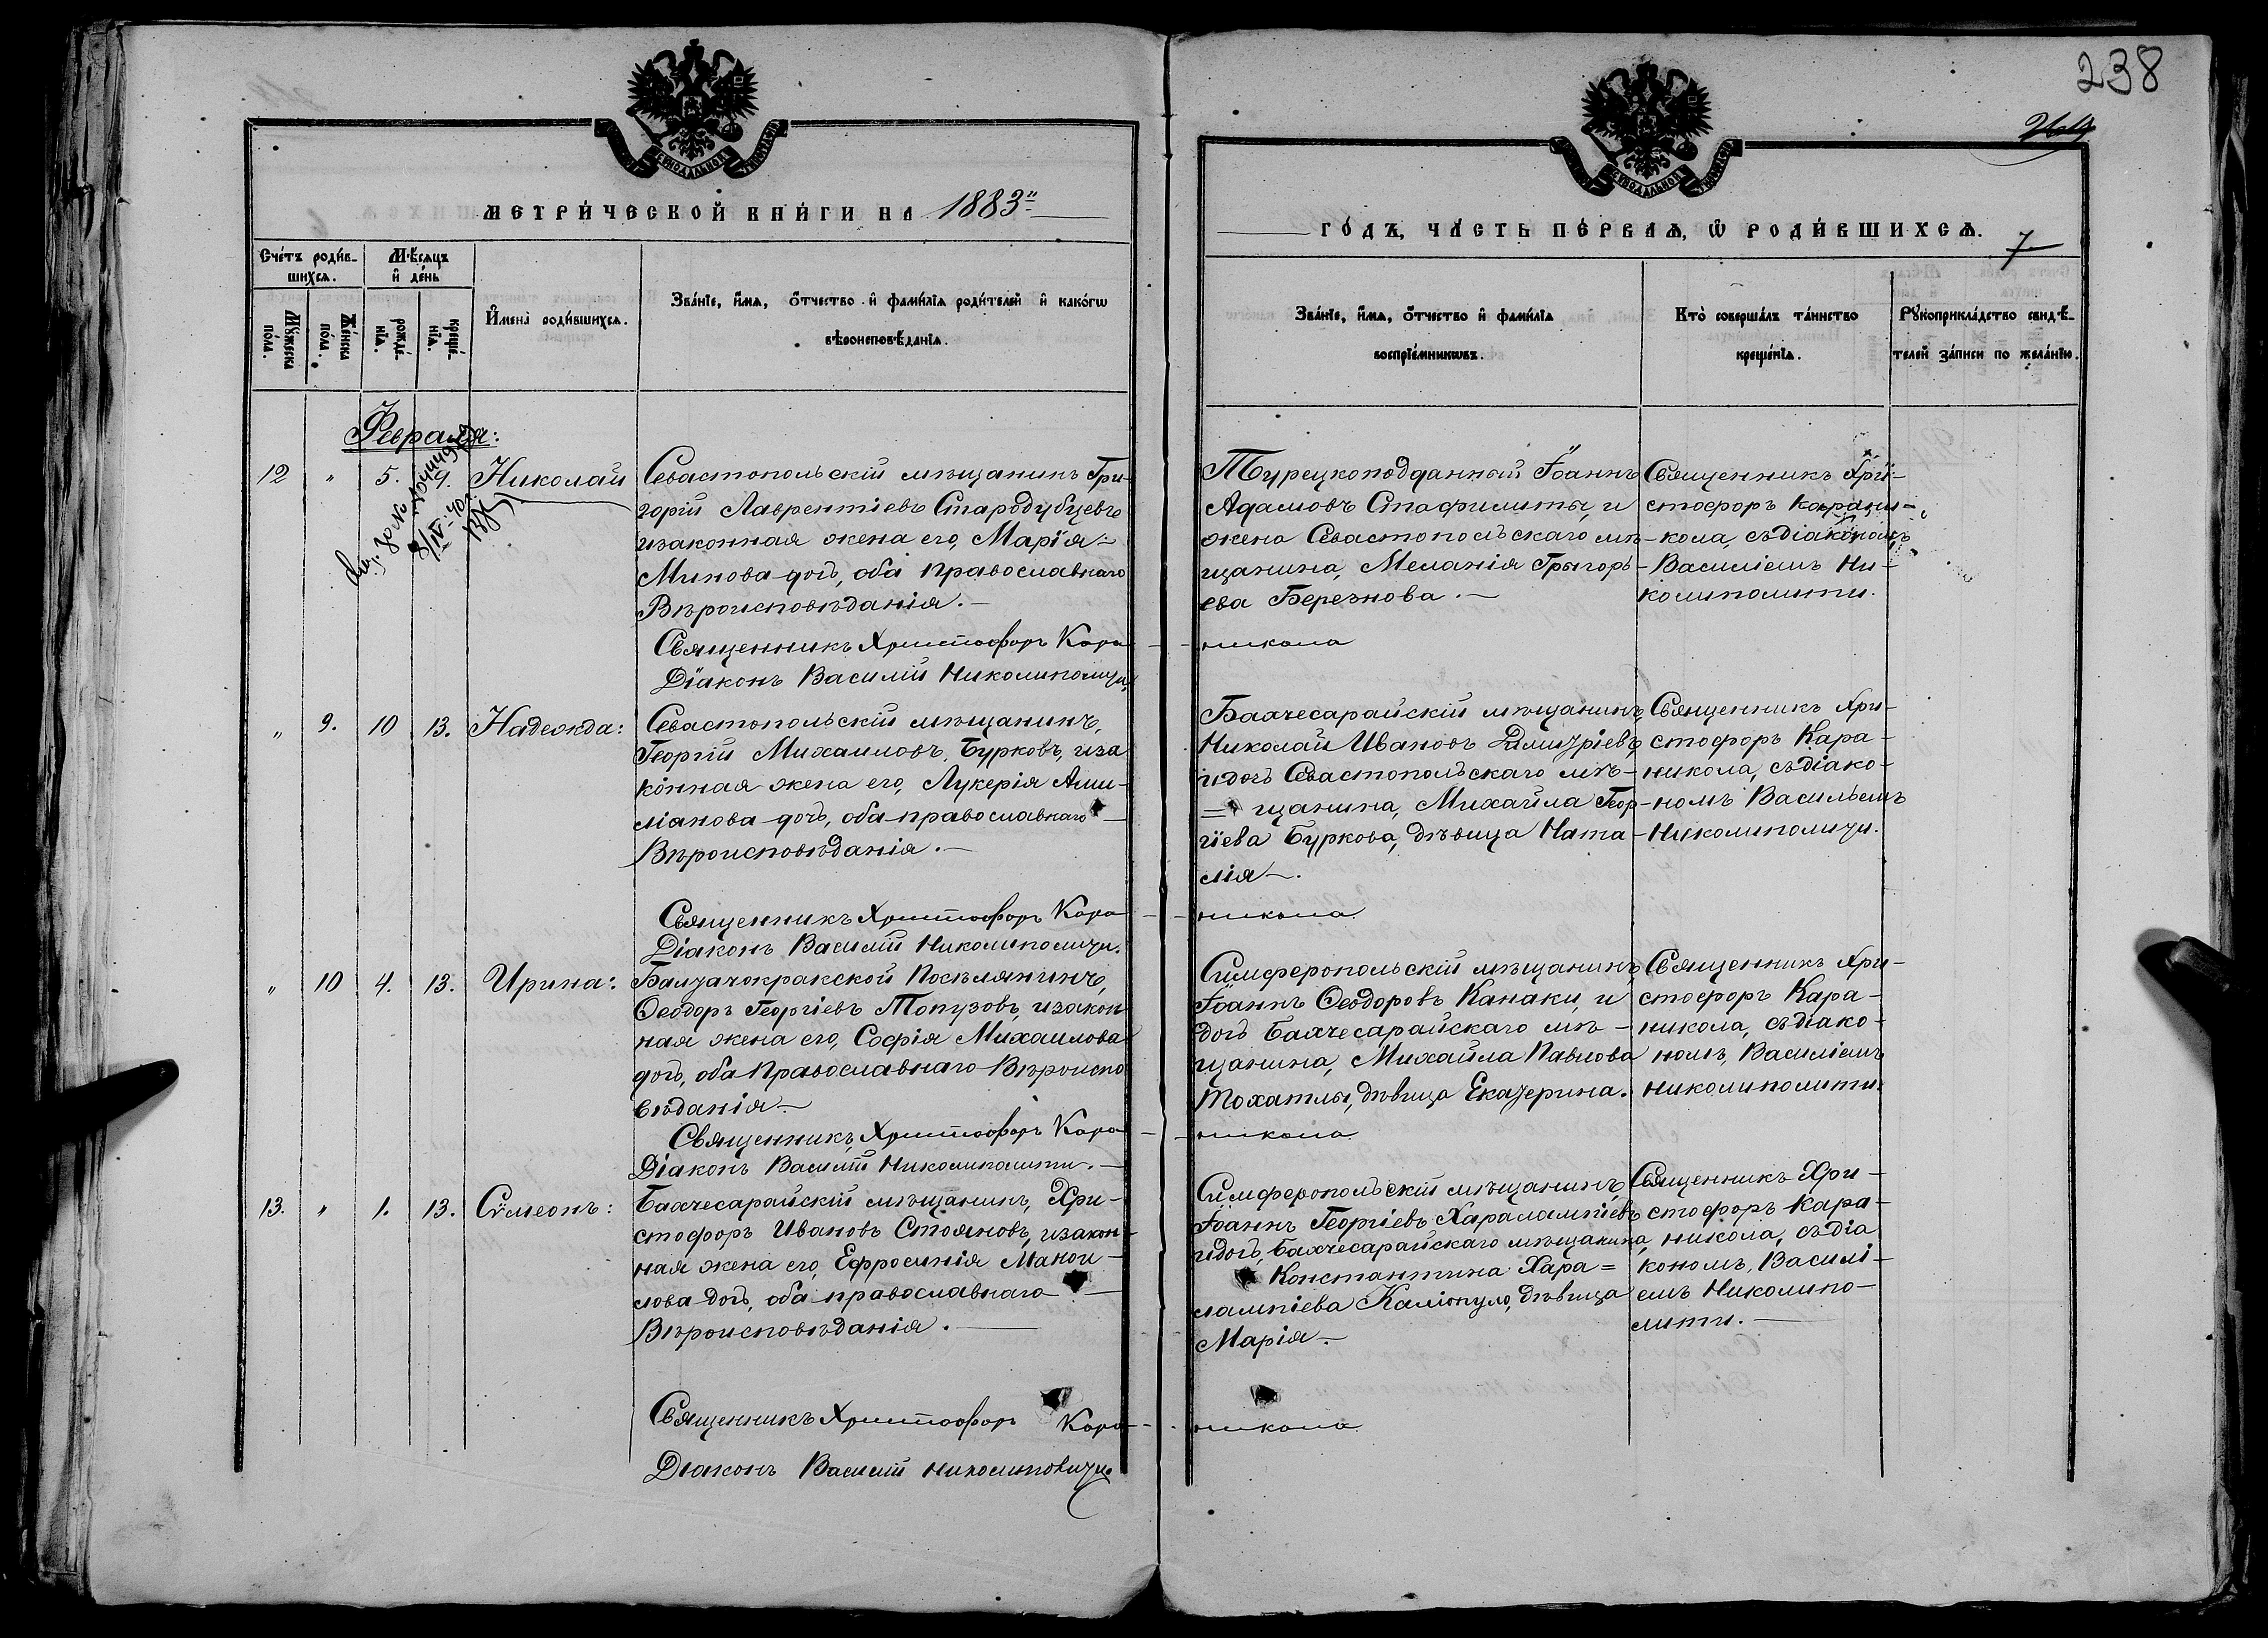 238
МЕТРИ́ЧЕСКОЙ КНИ́ГИ НА 1883й
ГО́ДЪ, ЧА́СТЬ ПЕ́РВАѦ, Ѡ РОДИ́ВШИХСѦ.
7
Сче́тъ роди́в-
шихсѧ.
Мꙋ́жеска
по́ла.
Же́нска
по́ла.
Мѣ́сѧцъ
и҆ де́нь
рожде́-
нїѧ.
креще́-
нїѧ.
И҆мена̀ роди́вшихсѧ.
Зва́нїе, и҆́мѧ, ѻ҆́тчество и҆ фами́лїѧ роди́телей и҆ како́гѡ
вѣроисповѣ́данїѧ.
Зва́нїе, и҆́мѧ, ѻ҆́тчество и҆ фами́лїѧ
воспрїе́мникѡвъ.
Кто̀ соверша́лъ та́инство
креще́нїѧ.
Рꙋкоприкла́дство свидѣ́-
телей за́писи по жела́нїю.
Февраля:
12 " 5. 9. Николай
Севастопольскій мѣщанинъ Гри-
горій Лаврентіевъ Стародубцевъ
изаконная жена его, Марія
Минова дочь, оба Православнаго
Вѣроисповѣданія.
Священникъ Христофоръ Кара-
Діаконъ Василій Николиполити
Турецкоподданный Іоаннъ
Адамовъ Стафилиты, и
жена Севастопольскаго мѣ-
щанина, Меланія Григорь-
ева Березнова.
никола
Священникъ Хри-
стофоръ Карани-
кола, съ діакономъ
Василіемъ Ни-
колиполити.
" 9. 10 13. Надежда:
Севастопольскій мѣщанинъ,
Георгій Михаиловъ Бурковъ, иза
конная жена его, Лукерія Ами-
ліанова дочь, оба православнаго
Вѣроисповѣданія.
Священникъ Христофоръ Кара
Діаконъ Василій Николиполити.
Бахчесарайскій мѣщанинъ
Николай Ивановъ Димитріевъ
идочь Севастопольскаго мѣ-
= щанина, Михайла Геор-
гіева Буркова, дѣвица Ната-
лія.
никола
Священникъ Хри-
стофоръ Кара-
никола, съ діако-
номъ Васильемъ
Николиполити.
" 10 4. 13. Ирина:
Балтачокракской Поселянинъ,
Ѳеодоръ Георгіевъ Топузовъ, изакон
ная жена его, Софія Михаилова
дочь, оба Православнаго Вѣроиспо
вѣданія
Священникъ Христофоръ Кара
Діаконъ Василій Николиполити.
Симферопольскій мѣщанинъ,
Іоаннъ Ѳеодоровъ Канаки, и
дочь Бахчесарайскаго мѣ-
щанина, Михайла Павлова
Тохатлы, дѣвица Екатерина.
никола
Священникъ Хри-
стофоръ Кара-
никола, съ діако-
номъ, Василіемъ
Николиполити.
13. " 1. 13. Сѵмеонъ:
Бахчесарайскій мѣщанинъ, Хри-
стофоръ Ивановъ Стояновъ, изакон-
ная жена его, Ефросинія Манои-
лова дочь, оба православнаго
Вѣроисповѣданія.
Священникъ Христофоръ Кара
Діаконъ Василій Николиполити
Симферопольскій мѣщанинъ,
Іоаннъ Георгіевъ Харалампіевъ
идочь, Бахчесарайскаго мѣщанина
Константина Хара=
лампіева Каліопуло, дѣвица
Марія
никола
Священникъ Хри-
стофоръ Кара-
никола, съ діа
кономъ, Василі-
емъ Николипо-
лити.